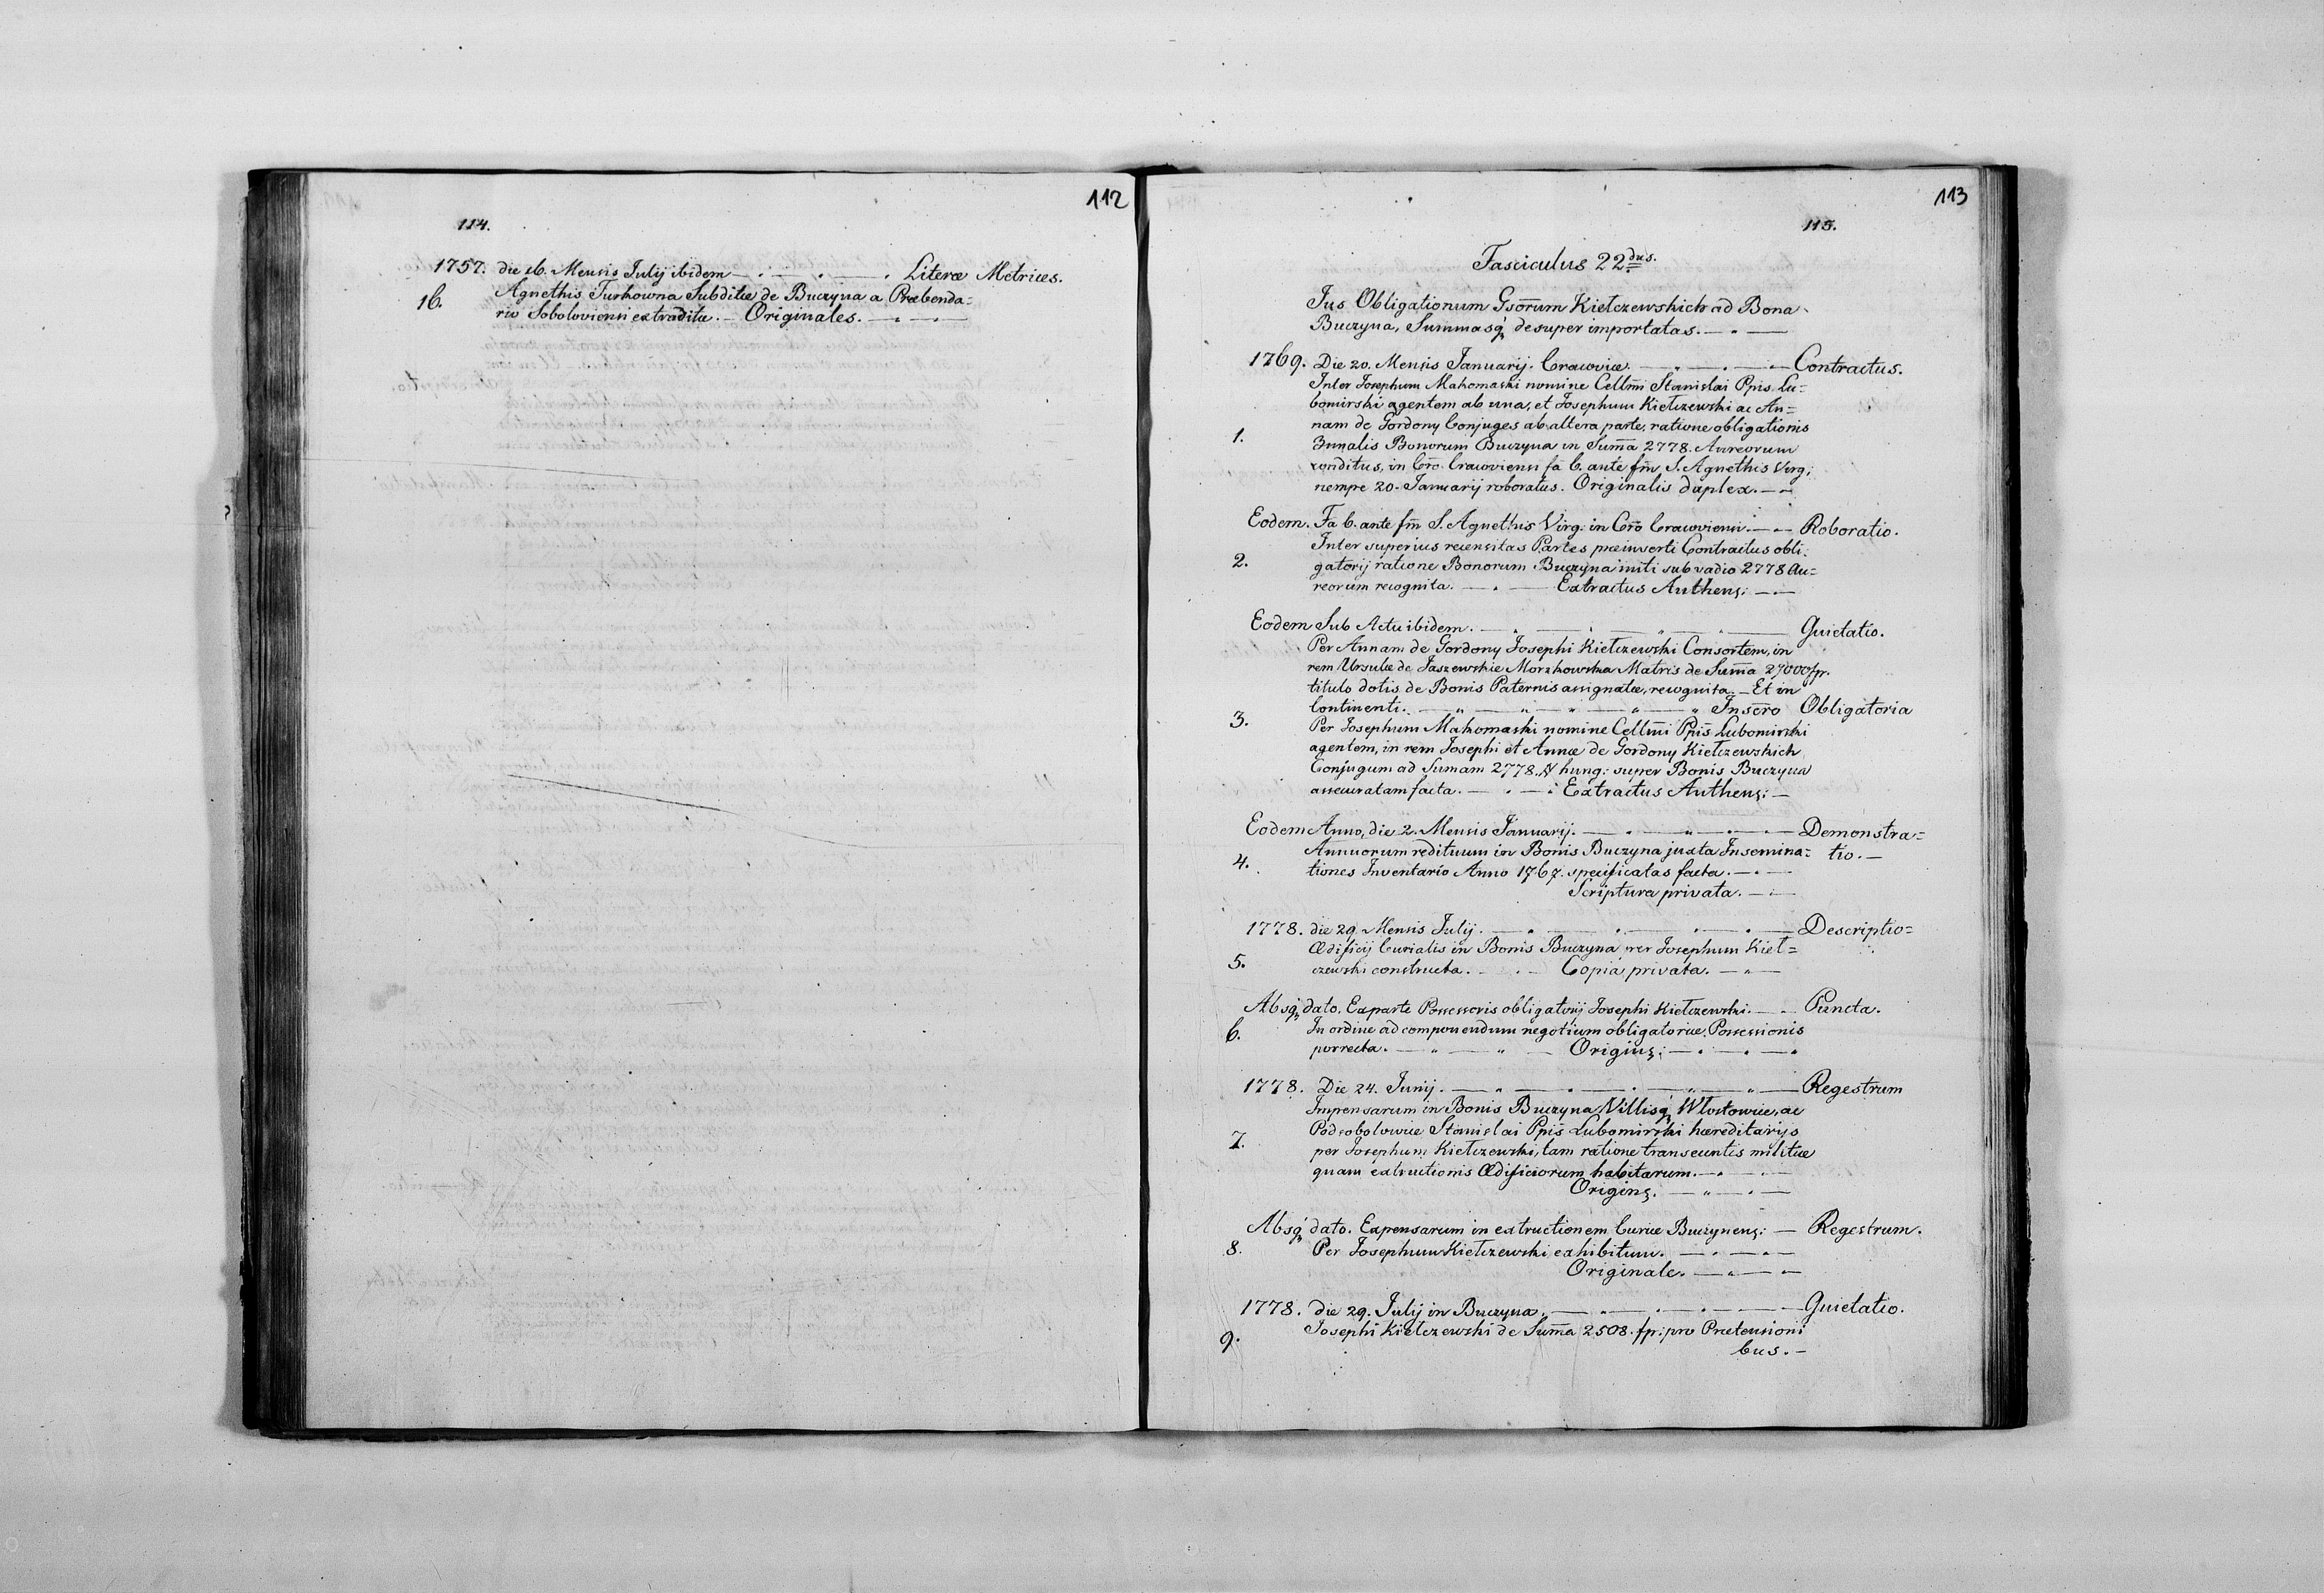 112
114.
1757. die 16. Mensis Julij ibidem — . — . — . Literæ Metrices.
16. Agnethis Turkowna Subditæ de Buczyna a Præbenda=
rio Soboloviensi extraditæ. — Originales. — . —
113
115.
Fasciculus 22dus.
Jus Obligationum Gsorum Kiełczewskich ad Bona
Buczyna, Summasq desuper importatas. — . —
1769. Die 20. Mensis Januarij. Cracoviæ. — . — . — Contractus.
Inter Josephum Makomaski nomine Cellmi Stanislai Ppis Lu=
bomirski agentem ab una, et Josephum Kiełczewski ac An=
nam de Gordony Conjuges ab altera parte, ratione obligationis
1. 3nnalis Bonorum Buczyna in Suma 2778. Aureorum
conditus, in Cro. Cracoviensi fa 6. ante fm S. Agnethis Virg:
nempe 20. Januarij roboratus. Originalis duplex. — —
Eodem. Fa 6. ante fm S. Agnethis Virg: in Cro Cracoviensi. — — Roboratio.
Inter superius recensitas Partes præinserti Contractus obli:
2. gatorij ratione Bonorum Buczyna initi sub vadio 2778 Au=
reorum recognita. — . — Extractus Authens: — —
Eodem Sub Actu ibidem. — . — . — . — . — Quietatio.
Per Annam de Gordony Josephi Kiełczewski Consortem, in
rem Ursulæ de Jaszewskie Morzkowska Matris de Suma 27000 fp.
titulo dotis de Bonis Paternis assignatæ, recognita. — Et in
Continenti. — „ — „ — „ — „ — „ Inscro Obligatoria
3. Per Josephum Makomaski nomine Cellmi Ppis Lubomirski
agentem, in rem Josephi et Annæ de Gordony Kiełczewskich
Conjugum ad Sumam 2778. # hung: super Bonis Buczyna
assecuratam facta. — . — . Extractus Authens: —
Eodem Anno, die 2. Mensis Januarij. — . — „ — . — Demonstra=
Annuorum redituum in Bonis Buczyna juxta Insemina= tio. —
4. tiones Inventario Anno 1767. specificatas facta. — . —
Scriptura privata. — . —
1778. die 29. Mensis Julij. — . — . — . — . — Descriptio=
Ædificij Curialis in Bonis Buczyna per Josephum Kieł=
5. czewski constructa. — . — Copia privata. — „ —
Absq dato. Exparte Possessoris obligatorij Josephi Kiełczewski. — . Puncta.
6. In ordine ad componendum negotium obligatoriæ Possessionis
porrecta. — „ — „ — Origins: — . — . — .
1778. Die 24. Junij. — „ — . — . — „ — „ — Regestrum
Impensarum in Bonis Buczyna Villisq Włostowice, ac
Podsobolowice Stanislai Ppis Lubomirski hæreditarijs
7. per Josephum Kiełczewski, tam ratione transeuntis militiæ
quam extructionis Ædificiorum habitarum. — . — . —
Origins. — „ — . —
Absq dato. Expensarum in extructionem Curiæ Buczynens: — Regestrum.
8. Per Josephum Kiełczewski exhibitum. — . — . —
Originale. — „ — „ —
1778. die 29. Julij in Buczyna. — . — . — . — — Quietatio.
9. Josephi Kiełczewski de Suma 2508. fp: pro Prætensioni
bus. —